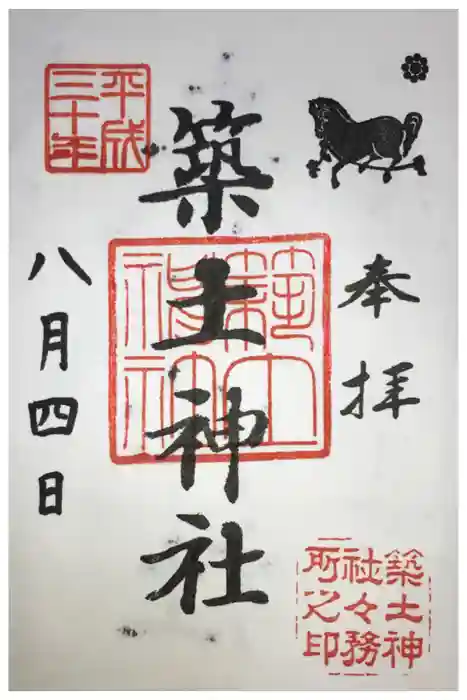 奉拝
築土神社
築土神社
平成三十年
八月四日
築土神社々務所之印